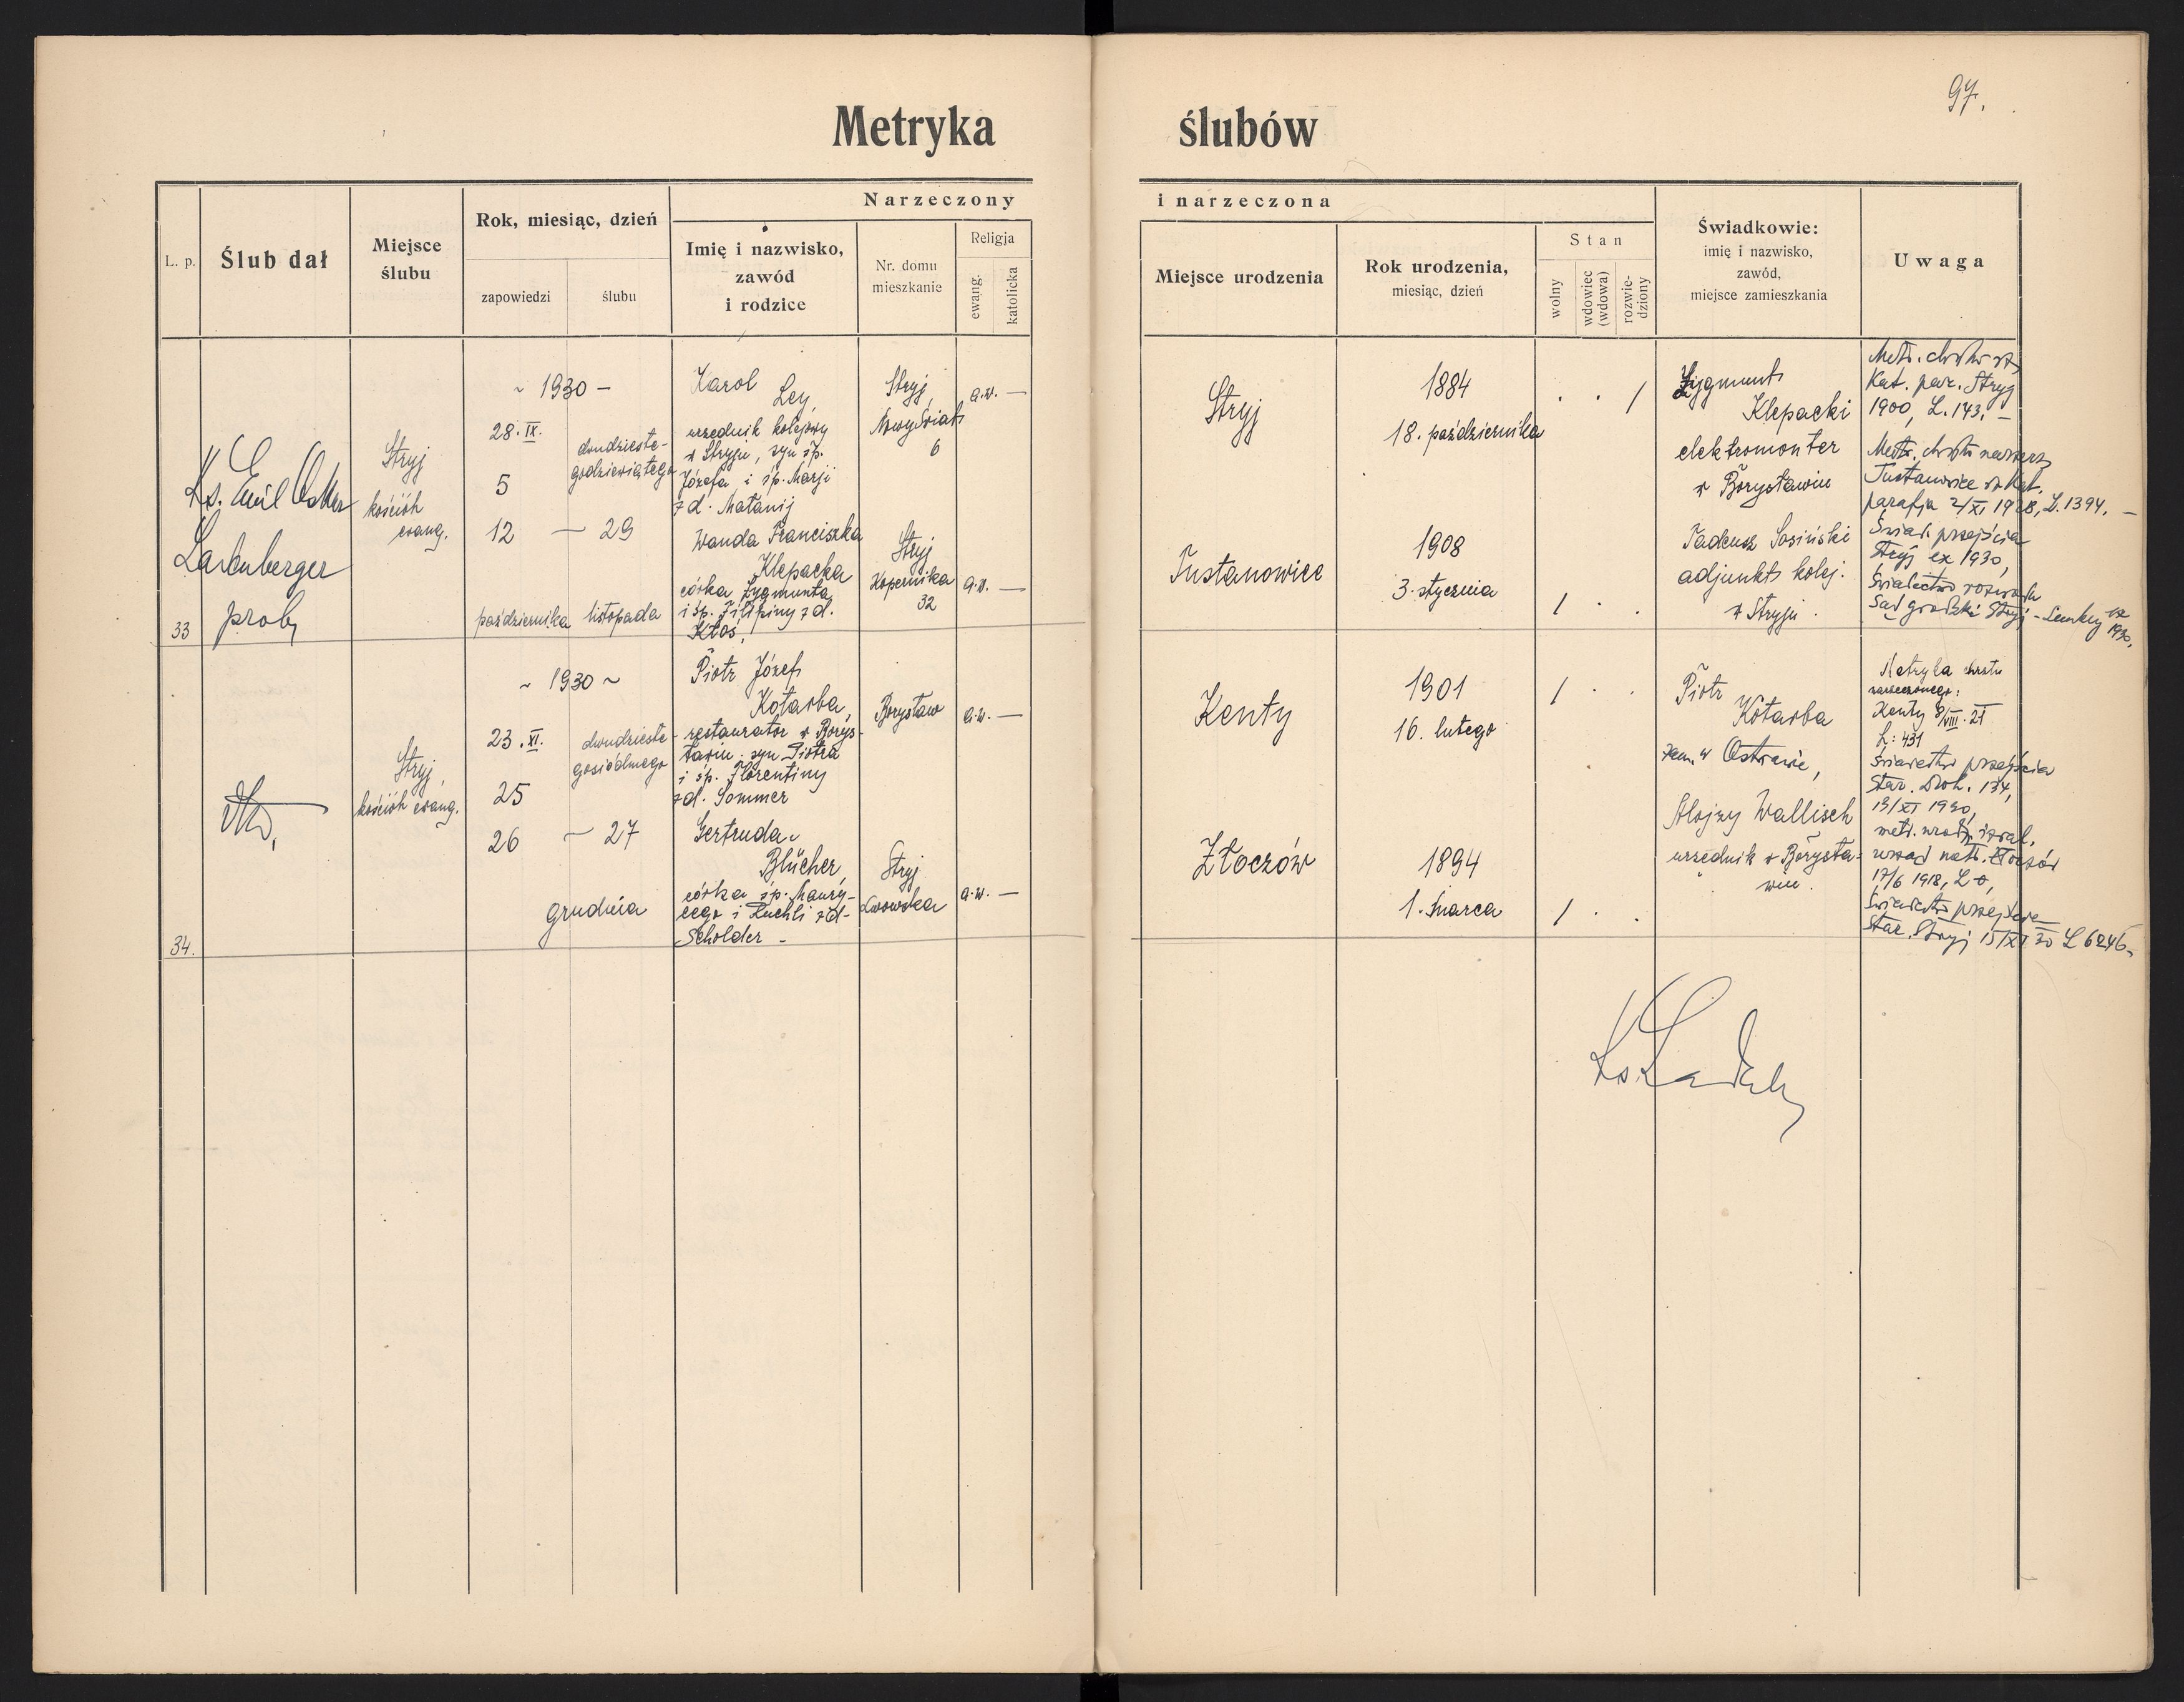 97.
Metryka ślubów
L. p.
Ślub dał
Miejsce
ślubu
Rok, miesiąc, dzień
zapowiedzi
ślubu
Narzeczony
Imię i nazwisko,
zawód
i rodzice
Nr. domu
mieszkanie
Religja
ewang.
katolicka
i narzeczona
Miejsce urodzenia
Rok urodzenia,
miesiąc, dzień
Stan
wolny
wdowiec
(wdowa)
rozwie-
dziony
Świadkowie:
imię i nazwisko,
zawód,
miejsce zamieszkania
Uwaga
33
Ks. Emil Oskar
Ladenberger
prob.
Stryj
kościół
ewang.
~ 1930 –
28. IX.
5
12
października
dwudzieste-
godziewiątego
— 29
listopada
Karol
Ley,
urzędnik kolejowy
w Stryju, syn śp.
Józefa i śp. Marji
z d. Matanij
Stryj,
Nowy Świat
6
a.w. —
Wanda Franciszka
Klepacka
córka Zygmunta
i śp. Filipiny z d.
Kłoś,
Stryj
Kopernika
32
a.w. —
Stryj
1884
18. października
. . /
Tustanowice
1908
3. stycznia
/ . .
Zygmunt
Klepacki
elektromonter
w Borysławiu
Tadeusz Sosiński
adjunkt kolej.
w Stryju.
Kat. par. Stryj
1900, L. 143. –
Tustanowice
parafja 2/XI 1928, L. 1394. –
Świad. przejścia
Stryj ex 1930,
Świadectwo rozwodu
Sąd grodzki Stryj -
1930.
34.
Stryj,
kościół ewang.
~ 1930 ~
23. XI.
25
26
dwudzieste-
gosiódmego
~ 27
grudnia
Piotr Józef
Kotarba,
restaurator w Borys-
ławiu, syn Piotra
i śp. Florentiny
z d. Sommer
Borysław
a.w. —
Gertruda
Blücher,
córka śp. Maury-
cego i Ruchli z d.
Scholder –
Stryj
Lwowska
a.w. —
Kenty
1901
16. lutego
/ . .
Złoczów
1894
1. marca
/ . .
Piotr
Kotarba
zam. w Ostrawie,
Alojzy Wallisch
urzędnik w Borysła-
wiu.
Metryka chrztu
narzeczonego:
Kenty 8/VIII. 21
L: 431
Świadectwo przejścia
Star. Droh. 134,
13/XI 1930,
metr. urodz. izrael.
urząd metr. Złoczów
17/6 1918, L 0,
Świadectwo przejścia
Star. Stryj 15/XI 30 L 6246.